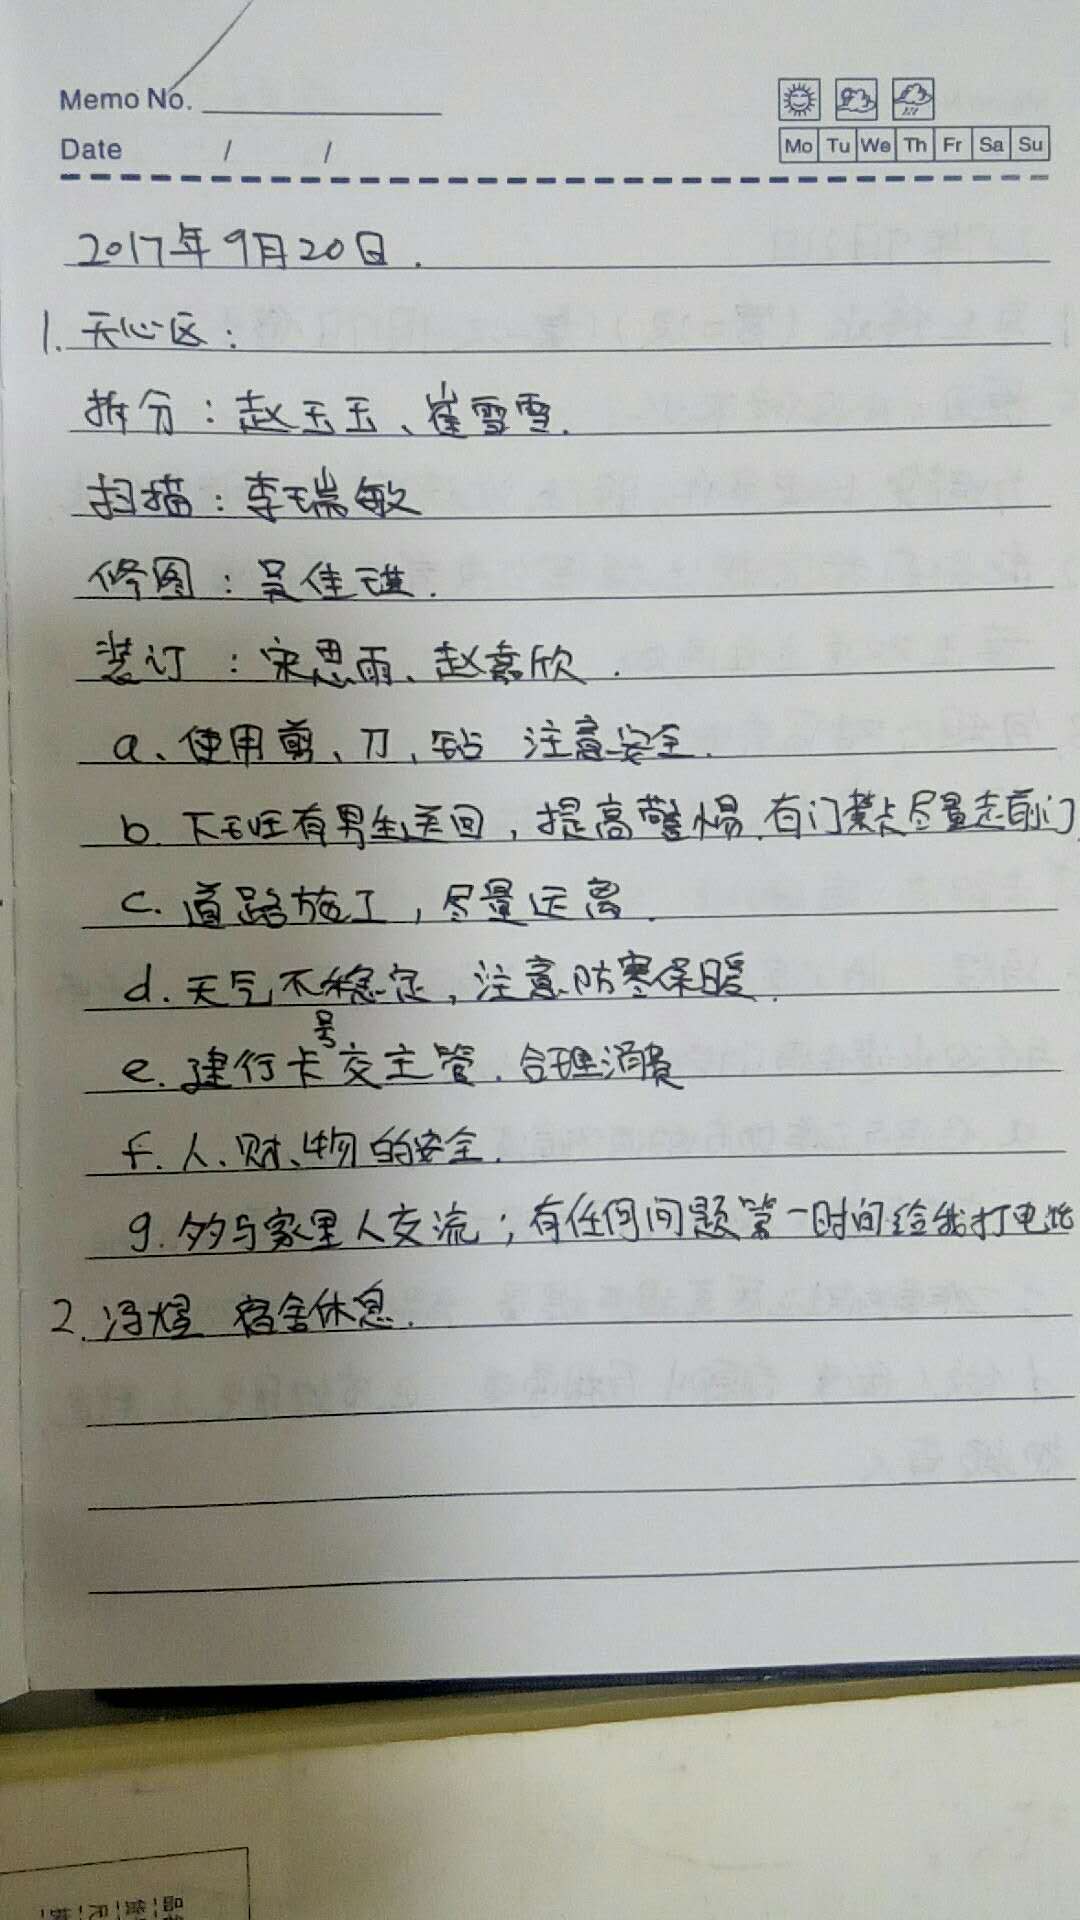 Memo No.
Date / /
Mo Tu We Th Fr Sa Su
2017年9月20日.
1. 天心区：
拆分：赵玉玉、崔雪雪.
扫描：李瑞敏
修图：吴佳琪.
装订：宋思雨、赵嘉欣.
a、使用剪、刀、钻 注意安全.
b. 下班有男生送回，提高警惕.有门禁卡尽量走前门
c. 道路施工，尽量远离.
d. 天气不稳定，注意防寒保暖.
e. 建行卡号交主管.合理消费
f. 人、财、物的安全.
g. 多与家里人交流；有任何问题第一时间给我打电话
2. 冯煜 宿舍休息.